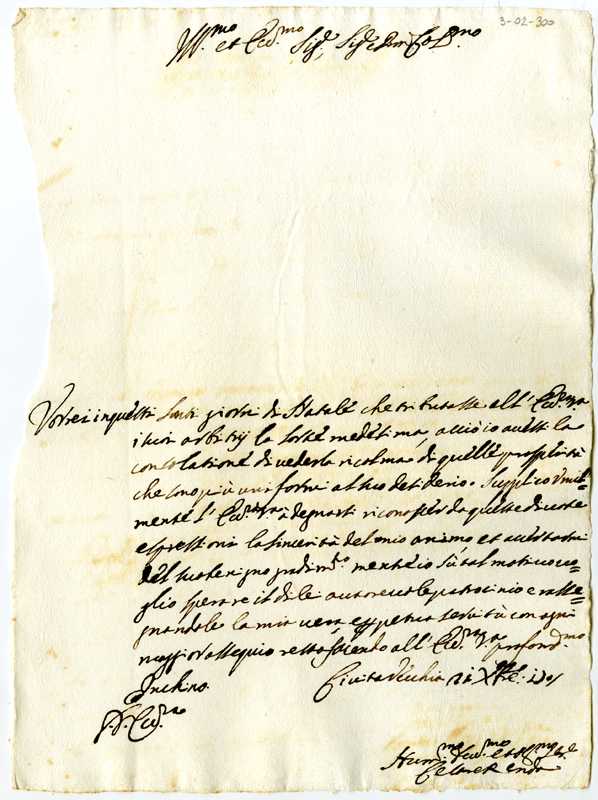 3-02-300
Ill.mo et Ecc.mo Sig.r, Sig.r
Vorrei in questi Santi giorni di Natale che tributasse all' Ecc.za V.ra
i suoi arbitrij la sorte medesima, acciò io avessi la
consolatione di vederla ricolma di quelle prosperità
che sono più uniformi al suo desiderio. Supplico Umil=
mente l' Ecc.za V.ra à degnarsi riconoscer da queste divote
espressioni la sincerità del mio animo et
del suo benigno gradim.to mentre io sù tal motivo vo=
glio sperare il di lei autorevole patrocinio e rasse=
gnandole la mia vera e perpetua servitù con ogni
maggior ossequio resto facendo all' Ecc.za V.ra profond.mo
Inchino.
Civita Vecchia 21 Xbre
V. Ecc.za
Hum.mo